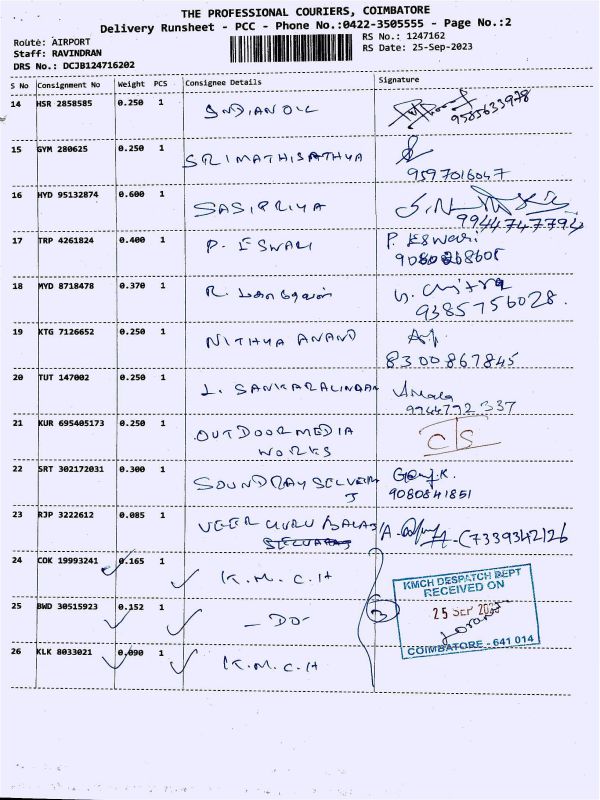 THE PROFESSIONAL COURIERS, COIMBATORE
Delivery Runsheet - PCC - Phone No.:0422-3505555 - Page No.:2
Route: AIRPORT
Staff: RAVINDRAN
DRS No.: DCJB124716202
RS No.: 1247162
RS Date: 25-Sep-2023
S No Consignment No Weight PCS Consignee Details Signature
14 HSR 2858585 0.250 1 INDIAN OIL
9585633978
15 GYM 280625 0.250 1 SRIMATHISATHYA
9597016047
16 HYD 95132874 0.600 1 SASIPRIYA
9944747794
17 TRP 4261824 0.400 1 P. ESWARI P. Eswari
18 MYD 8718478 0.370 1 R.
9385756028.
19 KTG 7126652 0.250 1 NITHYA ANAND
8300867845
20 TUT 147002 0.250 1 L. SANKARALINGAM
9944792337
21 KUR 695405173 0.250 1 OUTDOORMEDIA
WORKS
CS
22 SRT 302172031 0.300 1
9080841851
23 RJP 3222612 0.085 1 VEER GURU BALAJ
(7339342126
24 COK 19993241 0.165 1 K.M.C.H
25 BWD 30515923 0.152 1 - DO - 3
26 KLK 8033021 0.090 1 K.M.C.H
KMCH DESPATCH DEPT
RECEIVED ON
25 SEP 2023
COIMBATORE - 641 014